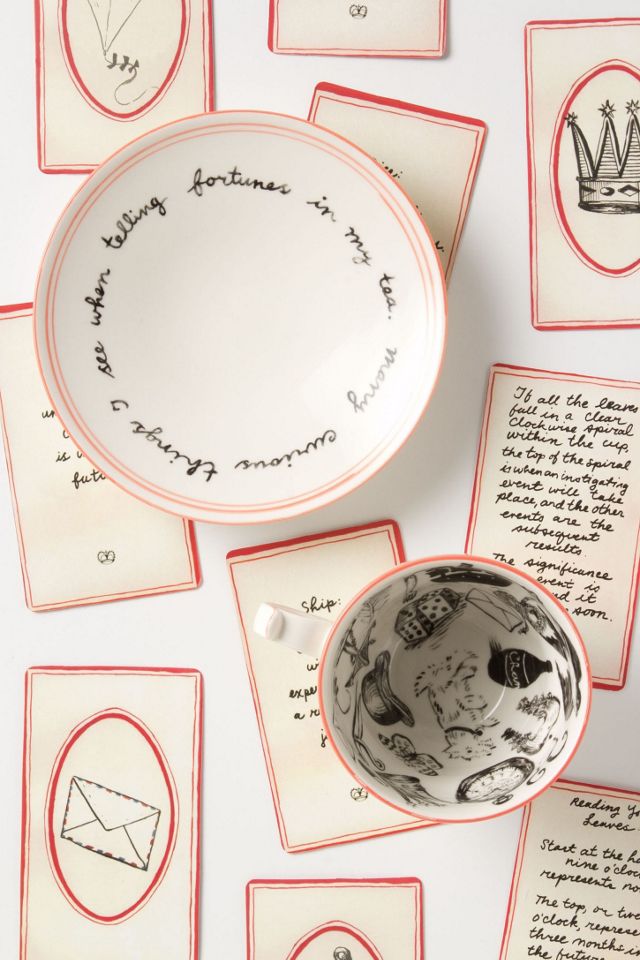 Many curious things I see when telling fortunes in my tea.
If all the leaves
fall in a clear
clockwise spiral
within the cup,
the top of the spiral
is when an instigating
event will take
place, and the other
events are the
subsequent
results.
The significance
event is
it
soon.
Ship:
a
Reading
Leaves
Start at the
nine o'clock
represents
The top, or
o'clock,
three months in
the future